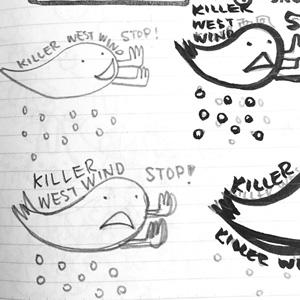 KILLER WEST WIND STOP!
KILLER
WEST
WIND
KILLER
WEST WIND STOP!
KILLER
KILLER